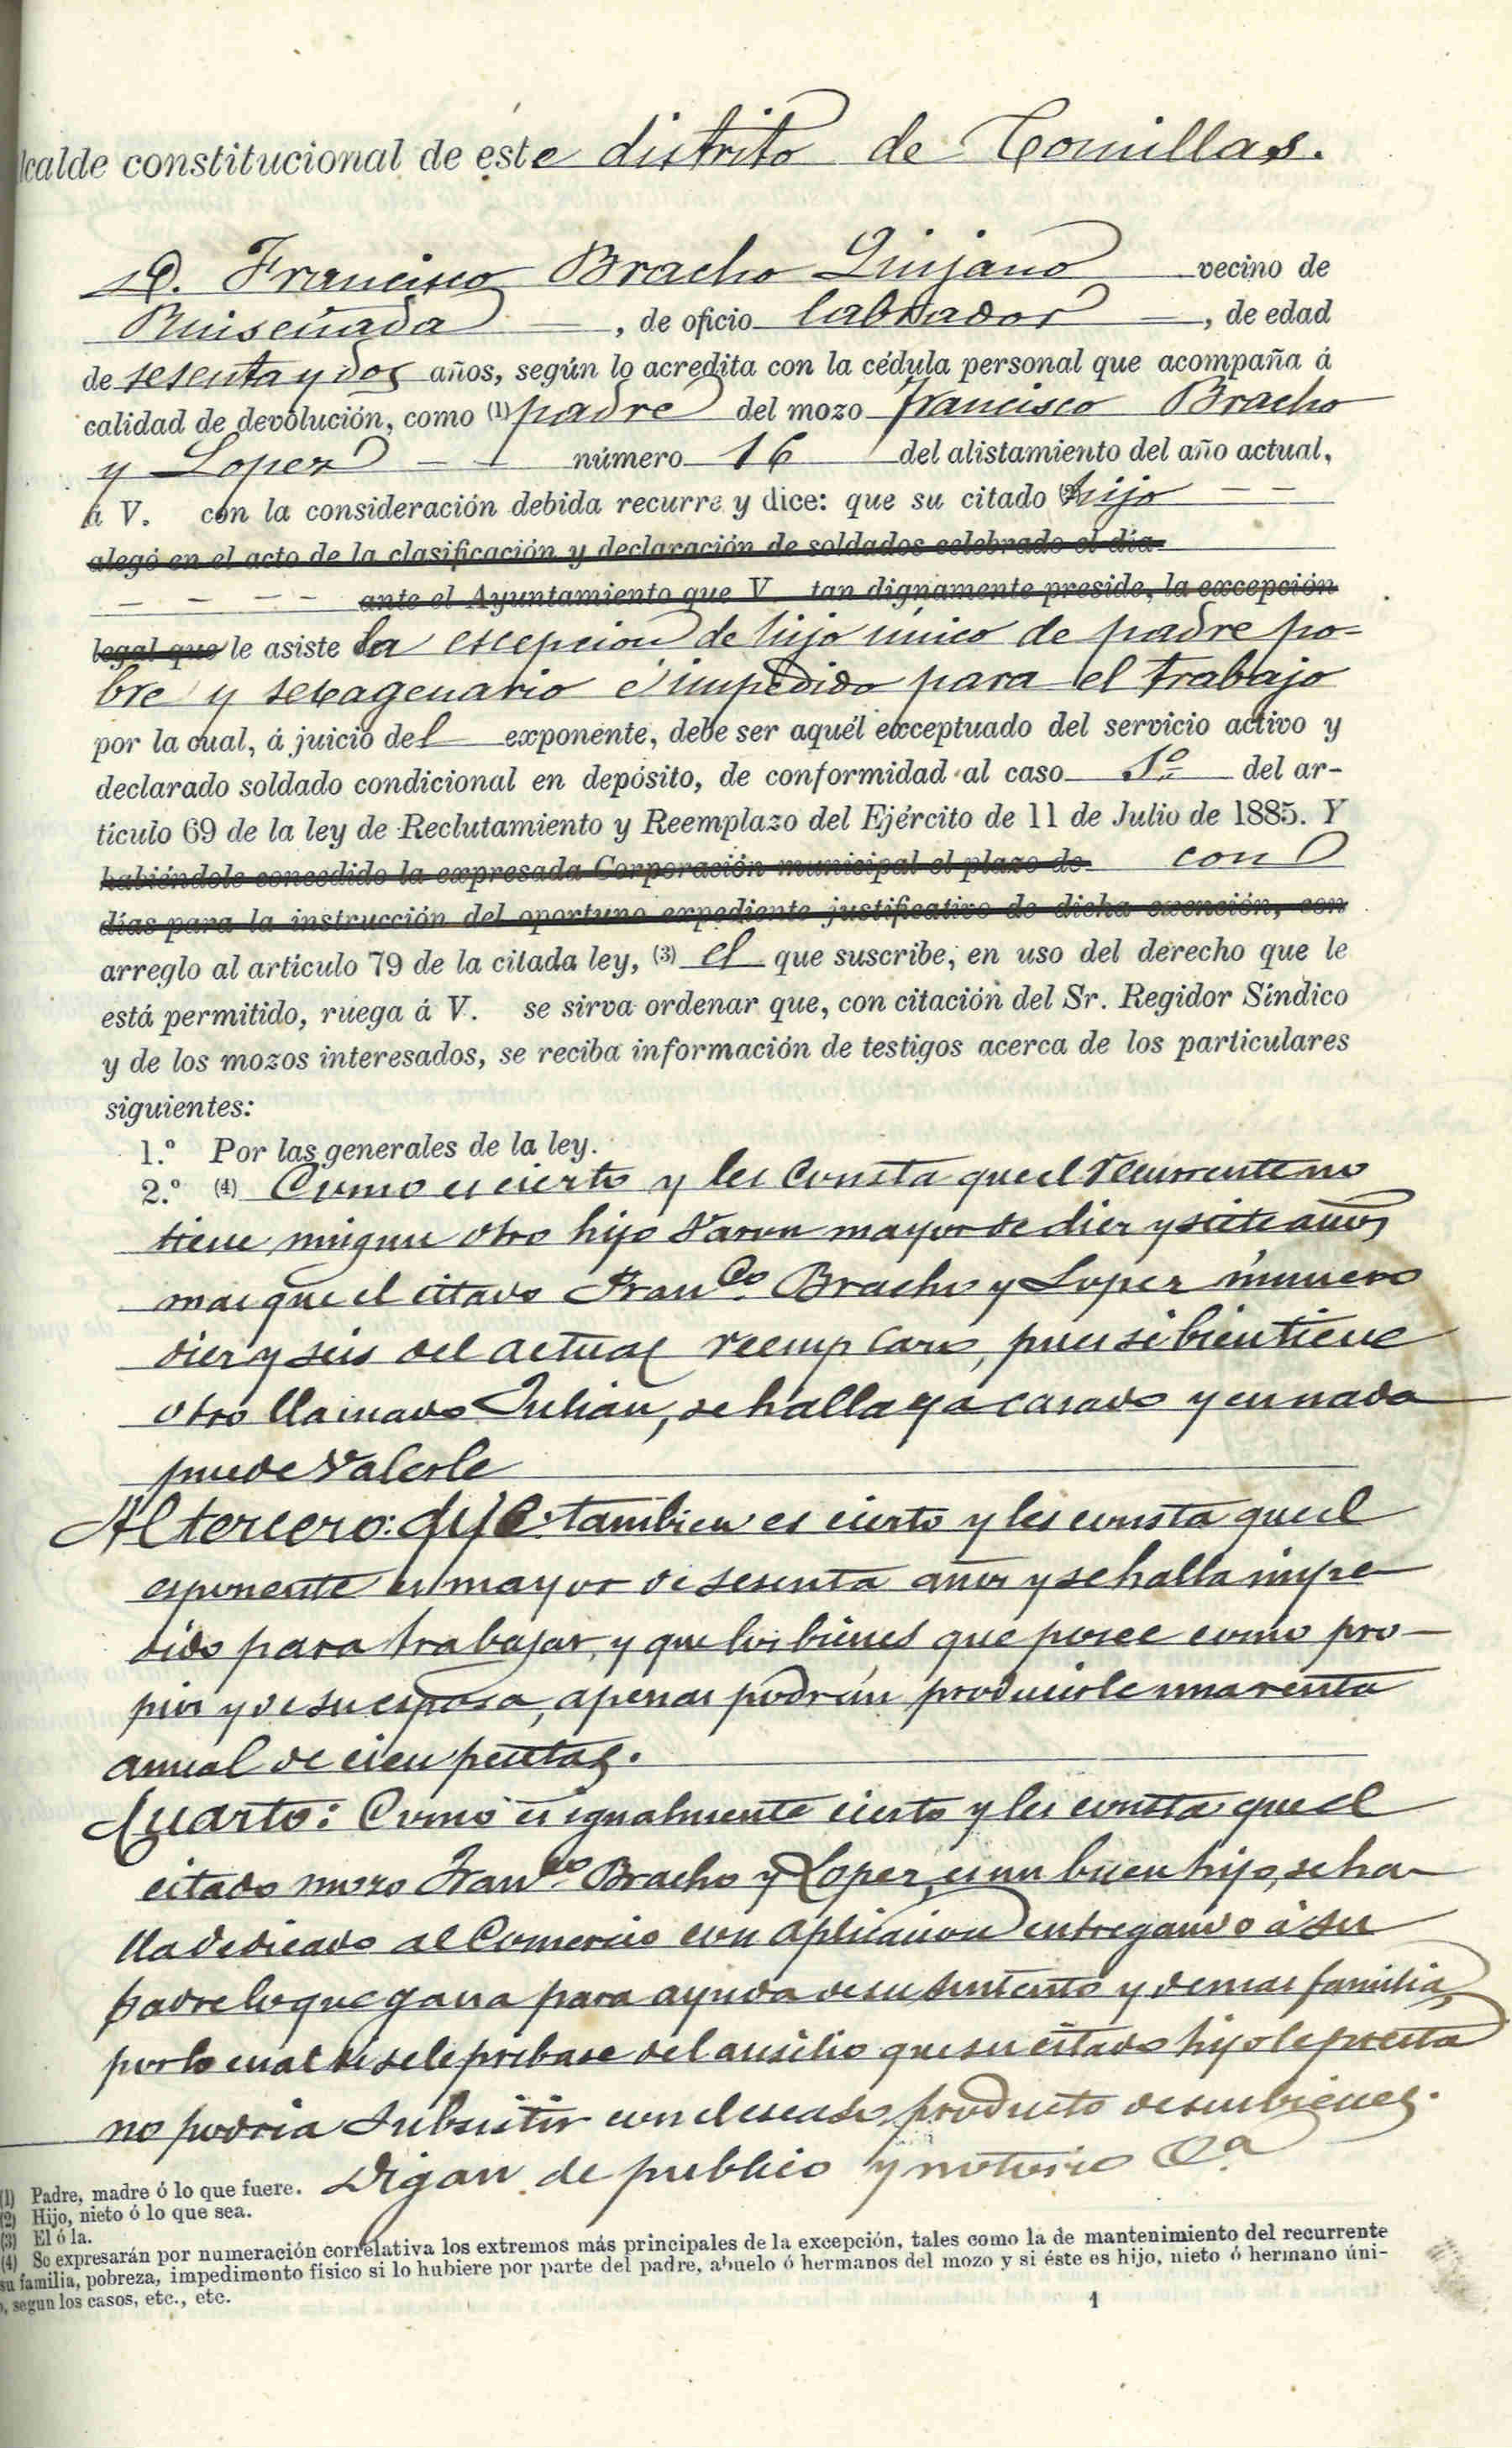 lcalde constitucional de este distrito de Comillas.
D. Francisco Bracho Quijano vecino de
Ruiseñada —, de oficio labrador —, de edad
de sesenta y dos años, según lo acredita con la cédula personal que acompaña á
calidad de devolución, como (1) padre del mozo Francisco Bracho
y Lopez — — número 16 del alistamiento del año actual,
á V. con la consideración debida recurre y dice: que su citado (2) hijo — —
alegó en el acto de la clasificación y declaración de soldados celebrado el día
— — — — — ante el Ayuntamiento que V. tan dignamente preside, la excepción
legal que le asiste la escepcion de hijo único de padre po=
bre y sexagenario é impedido para el trabajo
por la cual, á juicio del exponente, debe ser aquél exceptuado del servicio activo y
declarado soldado condicional en depósito, de conformidad al caso 1º del ar-
tículo 69 de la ley de Reclutamiento y Reemplazo del Ejército de 11 de Julio de 1885. Y
habiéndole concedido la expresada Corporación municipal el plazo de con
días para la instrucción del oportuno expediente justificativo de dicha exención, con
arreglo al artículo 79 de la citada ley, (3) el que suscribe, en uso del derecho que le
está permitido, ruega á V. se sirva ordenar que, con citación del Sr. Regidor Síndico
y de los mozos interesados, se reciba información de testigos acerca de los particulares
siguientes:
1.º Por las generales de la ley.
2.º (4) Como es cierto y les consta que el recurrente no
tiene ningun otro hijo varon mayor de diez y siete años
mas que el citado Franco. Bracho y Lopez número
diez y seis del actual reemplazo, pues si bien tiene
otro llamado Julian, se halla ya casado y en nada
puede valerle
Al tercero: dije. tambien es cierto y les consta que el
esponente es mayor de sesenta años y se halla impe-
dido para trabajar, y que los bienes que posee como pro-
pios y de su esposa, apenas podrán producirle una renta
anual de cien pesetas.
Cuarto: Como es igualmente cierto y les consta que el
citado mozo Franco. Bracho y Lopez, es un buen hijo, se ha-
lla dedicado al Comercio con aplicacion entregando á su
padre lo que gana para ayuda de su sustento y demas familia,
por lo cual si se le pribase del ausilio que su citado hijo le presta
no podria subsistir con el escaso producto de sus bienes.
Digan de publico y notorio &.a
(1) Padre, madre ó lo que fuere.
(2) Hijo, nieto ó lo que sea.
(3) El ó la.
(4) Se expresarán por numeración correlativa los extremos más principales de la excepción, tales como la de mantenimiento del recurrente
su familia, pobreza, impedimento físico si lo hubiere por parte del padre, abuelo ó hermanos del mozo y si éste es hijo, nieto ó hermano úni-
o, segun los casos, etc., etc.
1